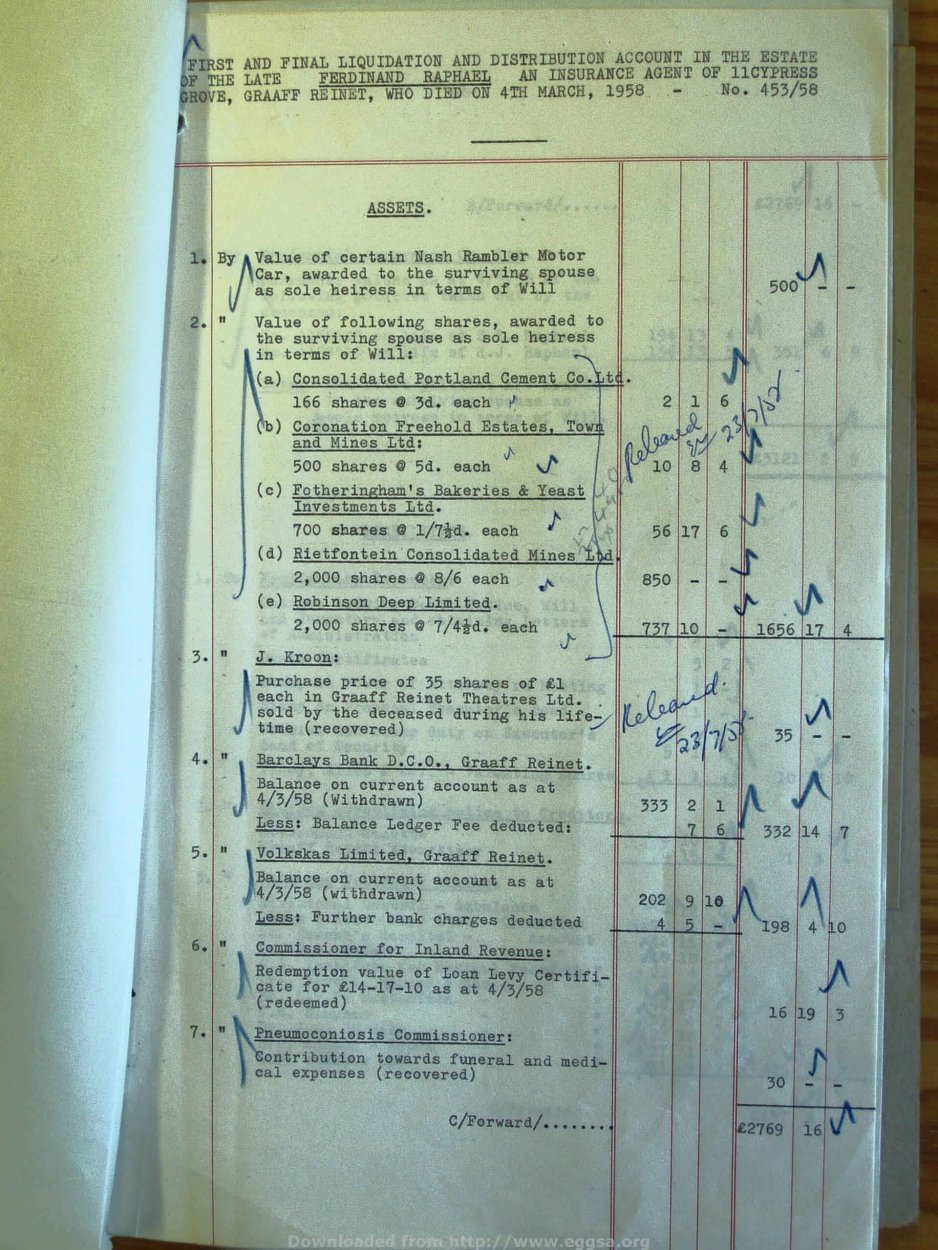 FIRST AND FINAL LIQUIDATION AND DISTRIBUTION ACCOUNT IN THE ESTATE
OF THE LATE FERDINAND RAPHAEL AN INSURANCE AGENT OF 11CYPRESS
GROVE, GRAAFF REINET, WHO DIED ON 4TH MARCH, 1958 - No. 453/58
ASSETS.
1. By Value of certain Nash Rambler Motor
Car, awarded to the surviving spouse
as sole heiress in terms of Will 500 - -
2. " Value of following shares, awarded to
the surviving spouse as sole heiress
in terms of Will:
(a) Consolidated Portland Cement Co.Ltd.
166 shares @ 3d. each 2 1 6
(b) Coronation Freehold Estates, Town
and Mines Ltd:
Released 23/7/58
500 shares @ 5d. each 10 8 4
(c) Fotheringham's Bakeries & Yeast
Investments Ltd.
700 shares @ 1/7½d. each 56 17 6
(d) Rietfontein Consolidated Mines Ltd.
2,000 shares @ 8/6 each 850 - -
(e) Robinson Deep Limited.
2,000 shares @ 7/4½d. each 737 10 - 1656 17 4
3. " J. Kroon:
Purchase price of 35 shares of £1
each in Graaff Reinet Theatres Ltd.
sold by the deceased during his life-
time (recovered) 35 - -
Released
23/7/58
4. " Barclays Bank D.C.O., Graaff Reinet.
Balance on current account as at
4/3/58 (Withdrawn) 333 2 1
Less: Balance Ledger Fee deducted: 7 6 332 14 7
5. " Volkskas Limited, Graaff Reinet.
Balance on current account as at
4/3/58 (withdrawn) 202 9 10
Less: Further bank charges deducted 4 5 - 198 4 10
6. " Commissioner for Inland Revenue:
Redemption value of Loan Levy Certifi-
cate for £14-17-10 as at 4/3/58
(redeemed) 16 19 3
7. " Pneumoconiosis Commissioner:
Contribution towards funeral and medi-
cal expenses (recovered) 30 - -
C/Forward/........ £2769 16
Downloaded from http://www.eggsa.org